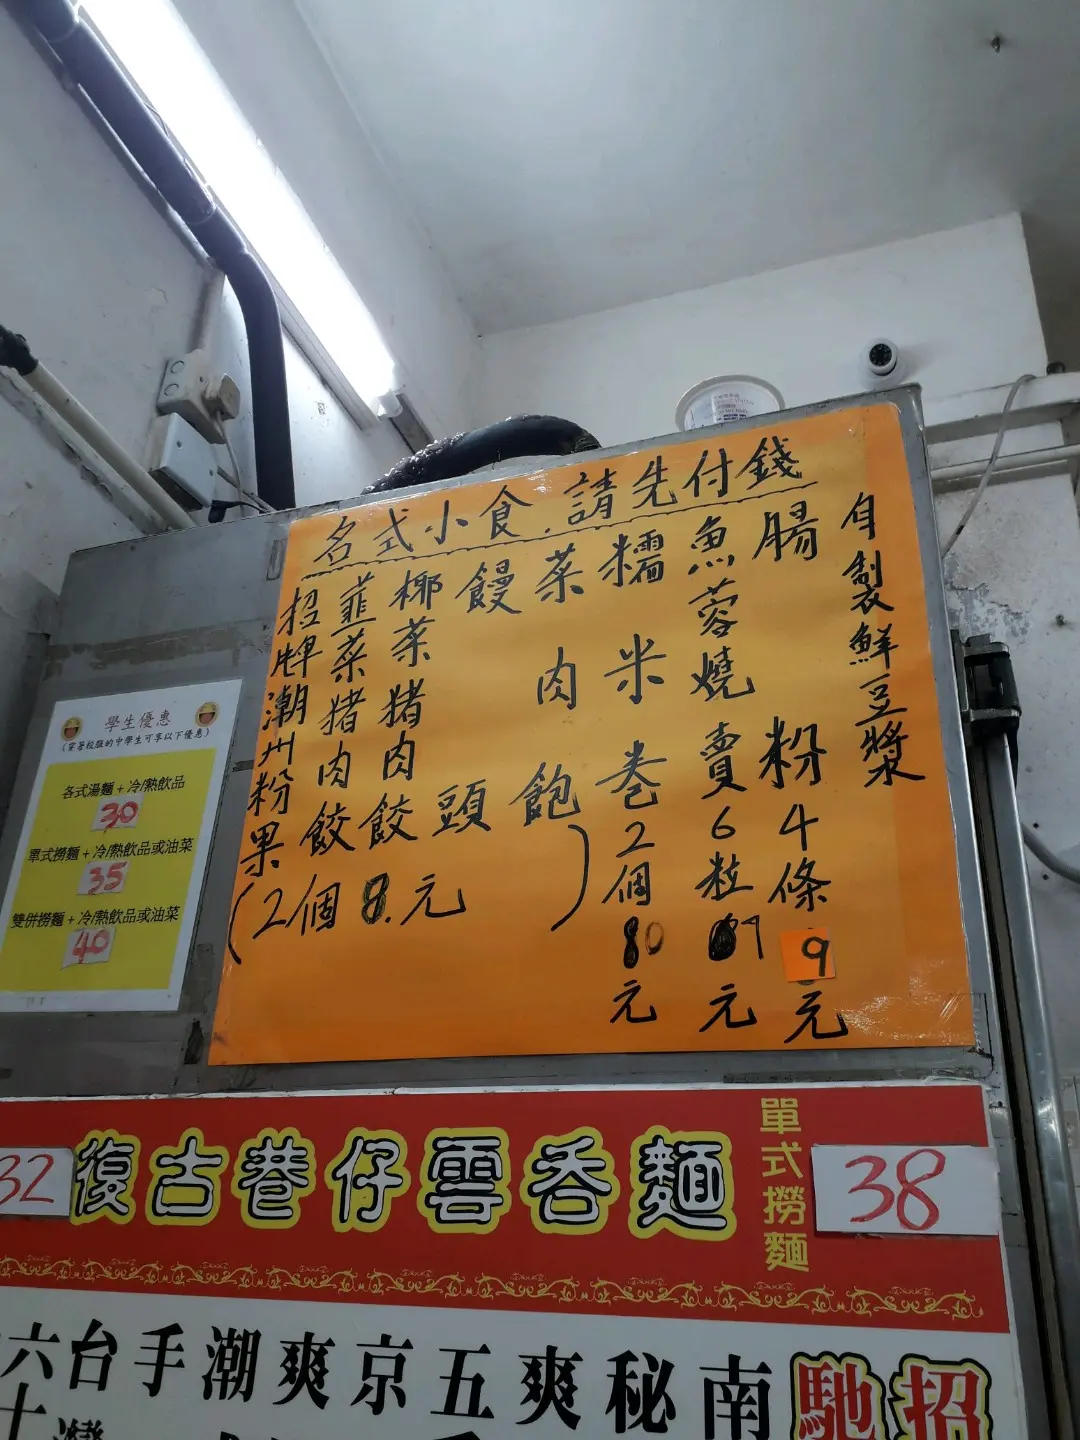 各式小食.請先付錢
自製鮮豆漿
腸粉4條9元
魚蓉燒賣6粒9元
糯米卷2個10元
菜肉飽
饅頭
椰菜猪肉餃
韮菜猪肉餃
招牌潮州粉果
(2個8.元)
學生優惠
(穿著校服的中學生可享以下優惠)
各式湯麵+冷/熱飲品
30
單式撈麵+冷/熱飲品或油菜
35
雙併撈麵+冷/熱飲品或油菜
40
32
復古巷仔雲吞麵
單式撈麵
38
招
馳
南
秘
爽
五
京
爽
潮
手
台灣
六十